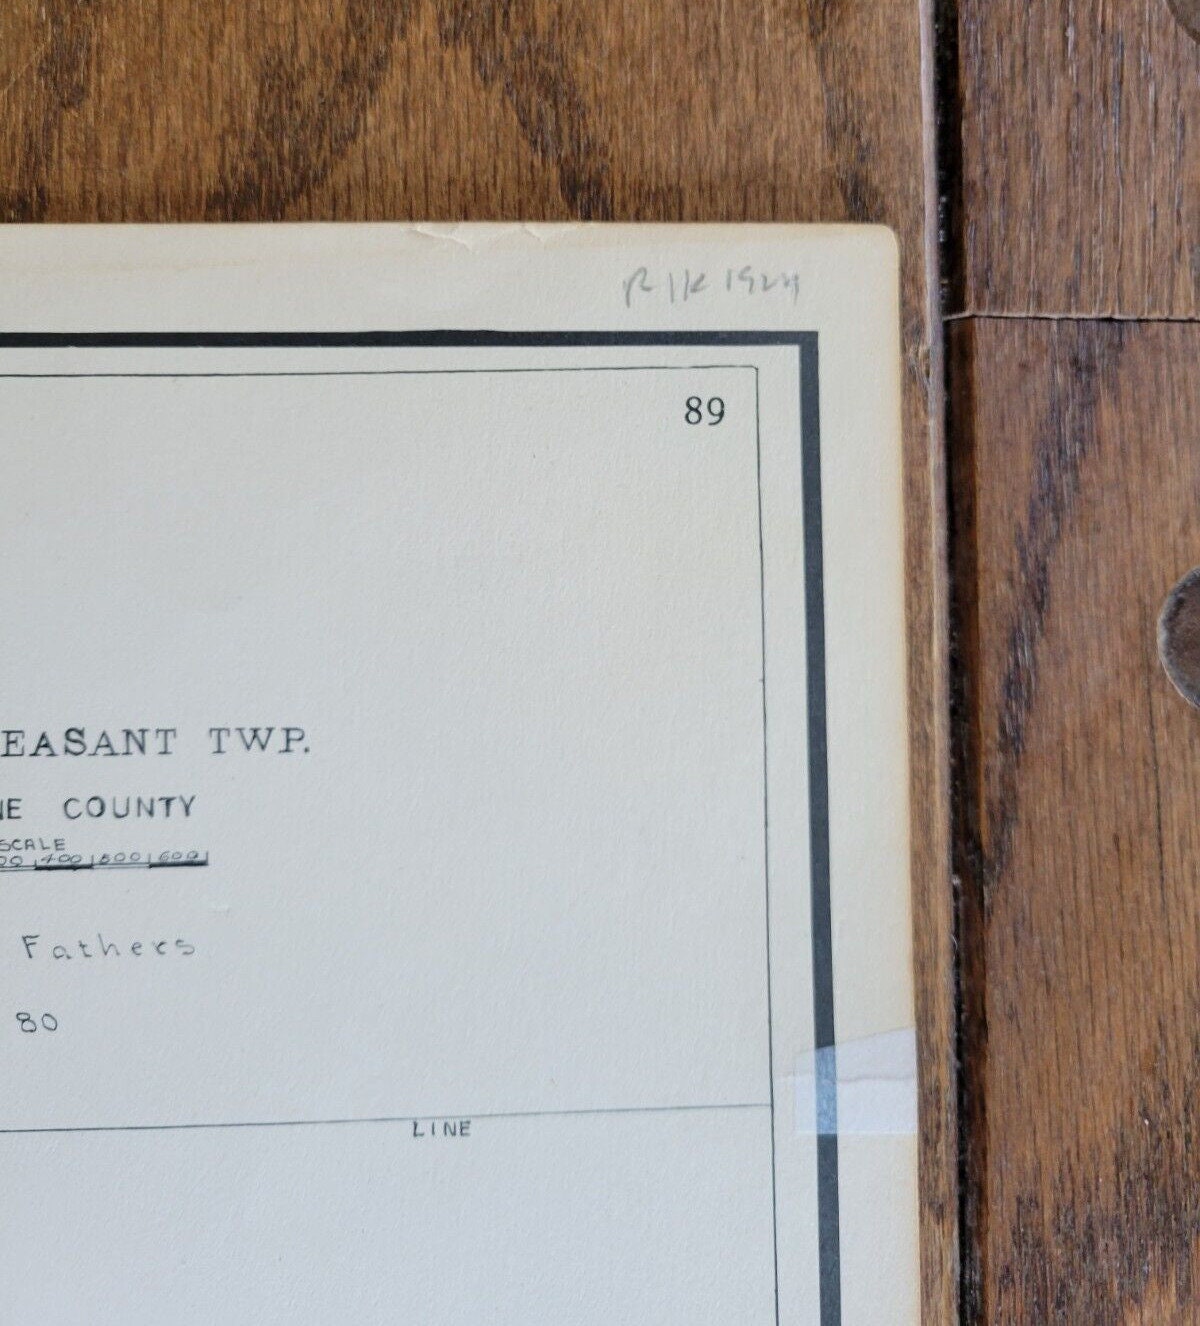 1924
89
EASANT TWP.
NE COUNTY
SCALE
00 400 500 600
Fathers
80
LINE